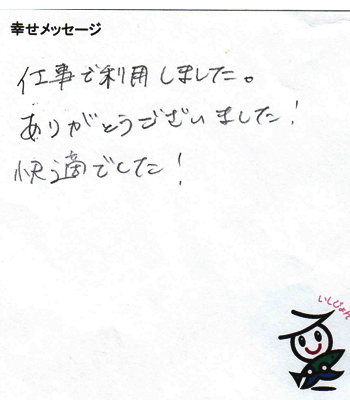 幸せメッセージ
仕事で利用しました。
ありがとうございました！
快適でした！
いしぴょん